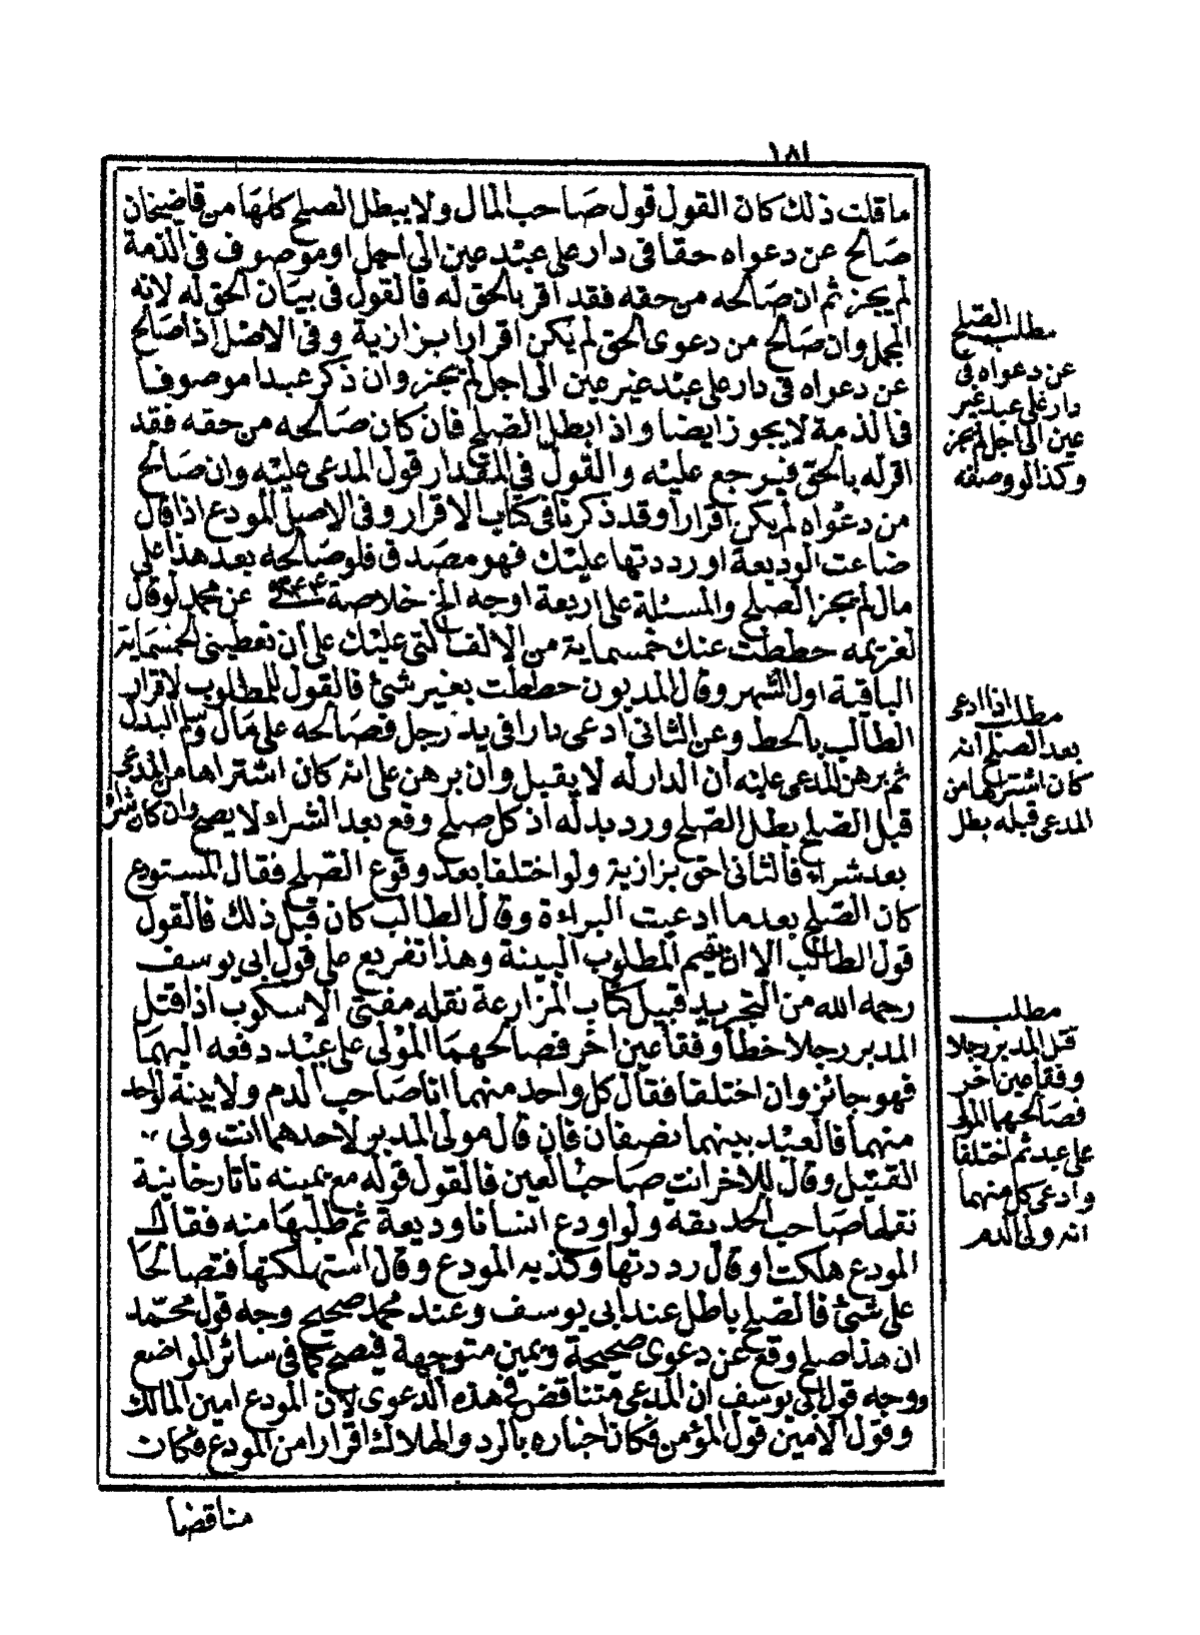 ١٨١
ما قلت ذلك كان القول قول صاحب المال ولا يبطل الصلح كلها من قاضيخان
صالح عن دعواه حقا فى دار على عبد عين الى اجل او موصوف فى الذمة
لم يجز ثم ان صالحه من حقه فقد اقر بالحق له فالقول فى بيان الحق له لانه
المجمل وان صالح من دعوى الحق لم يكن اقرارا بزازية وفى الاصل اذا صالح
عن دعواه فى دار على عبد غير عين الى اجل لم يجز وان ذكر عبدا موصوفا
فى الذمة لا يجوز ايضا واذا بطل الصلح فان كان صالحه من حقه فقد
اقر له بالحق فيرجع عليه والقول فى المقدار قول المدعى عليه وان صالح
من دعواه لم يكن اقرارا وقد ذكرنا فى كتاب الاقرار وفى الاصل المودع اذا قال
ضاعت الوديعة او رددتها عليك فهو مصدق فلو صالحه بعد هذا على
مال لم يجز الصلح والمسئلة على اربعة اوجه الخ خلاصة عن محمد لو قال
لغريمه حططت عنك خمسماية من الالف التى عليك على ان تعطينى الخمسماية
الباقية اول الشهر وقال المديون حططت بغير شئ فالقول للمطلوب لاقرار
الطالب بالحط وعن الثانى ادعى دارا فى يد رجل فصالحه على مال وسلم البدل
ثم برهن المدعى عليه ان الدار له لا يقبل وان برهن على انه كان اشتراها من المدعى
قبل الصلح بطل الصلح ورد بدله اذ كل صلح وقع بعد الشراء لا يصح وان كان شراء
بعد شراء فالثانى احق بزازية ولو اختلفا بعد وقوع الصلح فقال المستودع
كان الصلح بعدما ادعيت البراءة وقال الطالب كان قبل ذلك فالقول
قول الطالب الا ان يقيم المطلوب البينة وهذا تفريع على قول ابى يوسف
رحمه الله من التجريد قبيل كتاب المزارعة نقله مفتى الاسكوب اذا قتل
المدبر رجلا خطأ وفقأ عين اخر فصالحهما المولى على عبد دفعه اليهما
فهو جائز وان اختلفا فقال كل واحد منهما انا صاحب الدم ولا بينة لواحد
منهما فالعبد بينهما نصفان فان قال مولى المدبر لاحدهما انت ولى
القتيل وقال للاخر انت صاحب العين فالقول قوله مع يمينه تاتارخانية
نقلها صاحب الحديقه ولو اودع انسانا وديعة ثم طلبها منه فقال
المودع هلكت او قال رددتها وكذبه المودع وقال استهلكتها فتصالحا
على شئ فالصلح باطل عند ابى يوسف وعند محمد صحيح وجه قول محمد
ان هذا صلح وقع عن دعوى صحيحة ويمين متوجهة فيصح كما فى سائر المواضع
ووجه قول ابى يوسف ان المدعى متناقض فى هذه الدعوى لان المودع امين المالك
وقول الامين قول المؤمن فكان اخباره بالرد والهلاك اقرارا من المودع فكان
مناقضا
مطلب الصلح
عن دعواه فى
دار على عبد غير
عين الى اجل لم يجز
وكذا لو وصفه
مطلب اذا ادعى
بعد الصلح انه
كان اشتراها من
المدعى قبله بطل
مطلب
قتل المدبر رجلا
وفقأ عين اخر
فصالحهما المولى
على عبد ثم اختلفا
وادعى كل منهما
انه ولى الدم